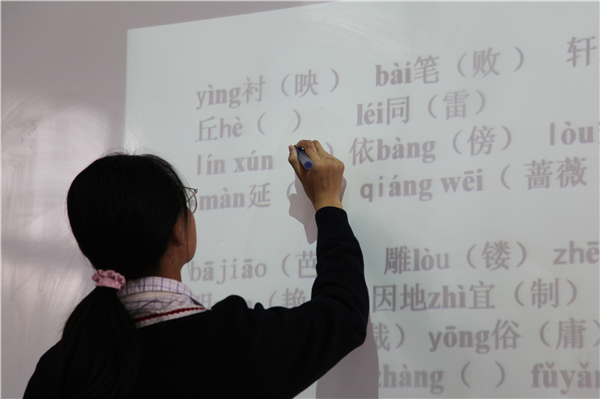 yìng衬（映 ） bài笔（败 ） 轩
丘hè（ ） léi同（雷）
lín xún 依bàng（傍）
màn延 qiáng wēi（ 蔷薇
bājiāo（芭 雕lòu（镂）
（艳 因地zhì宜（制）
） yōng俗（庸）
zhàng（ ）